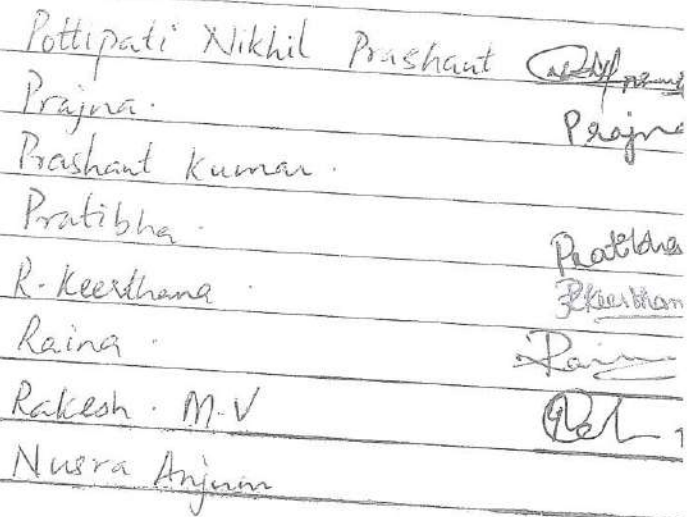 Pottipati Nikhil Prashant
Prajna. Prajna
Prashant Kumar.
Pratibha. Pratibha
R. Keerthana. R Keerthan
Raina.
Rakesh. M.V
Nusra Anjum